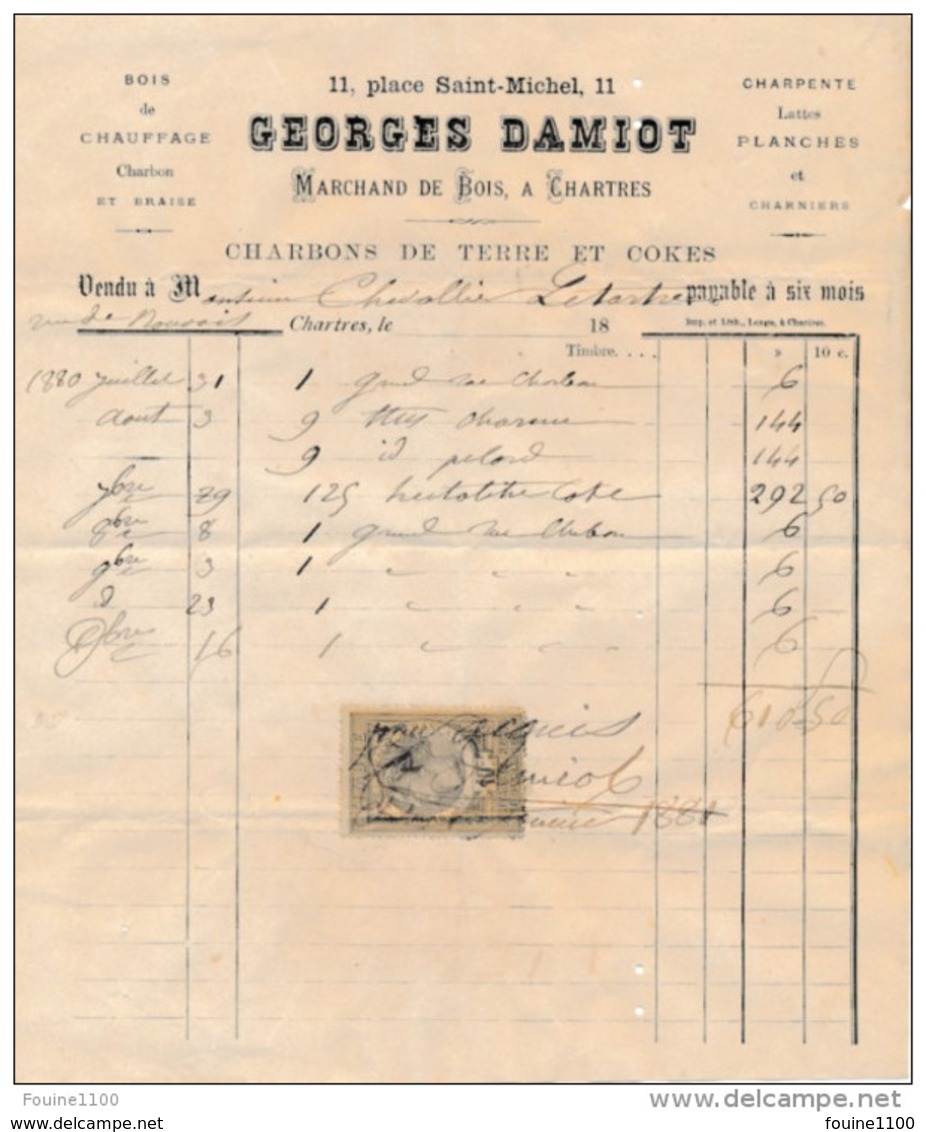 BOIS
de
CHAUFFAGE
Charbon
ET BRAISE
11, place Saint-Michel, 11
GEORGES DAMIOT
MARCHAND DE BOIS, A CHARTRES
CHARPENTE
Lattes
PLANCHES
et
CHARNIERS
CHARBONS DE TERRE ET COKES
Vendu à Monsieur Chevallier Letartre payable à six mois
rue de
Chartres, le 18
Imp. et Lith., Lange, à Chartres.
Timbre. . . . » 10 c.
1880 juillet 31 1 grand sac 6
aout 3 9 144
9 id pelard 144
7bre 29 125 hectolitre Coke 292 50
8bre 8 1 grand sac 6
9bre 3 1 " " " 6
d 23 1 " " " 6
Xbre 16 1 " " " 6
610 50
pour acquis
Damiot
1881
Fouine1100
www.delcampe.net
Fouine1100
fouine1100